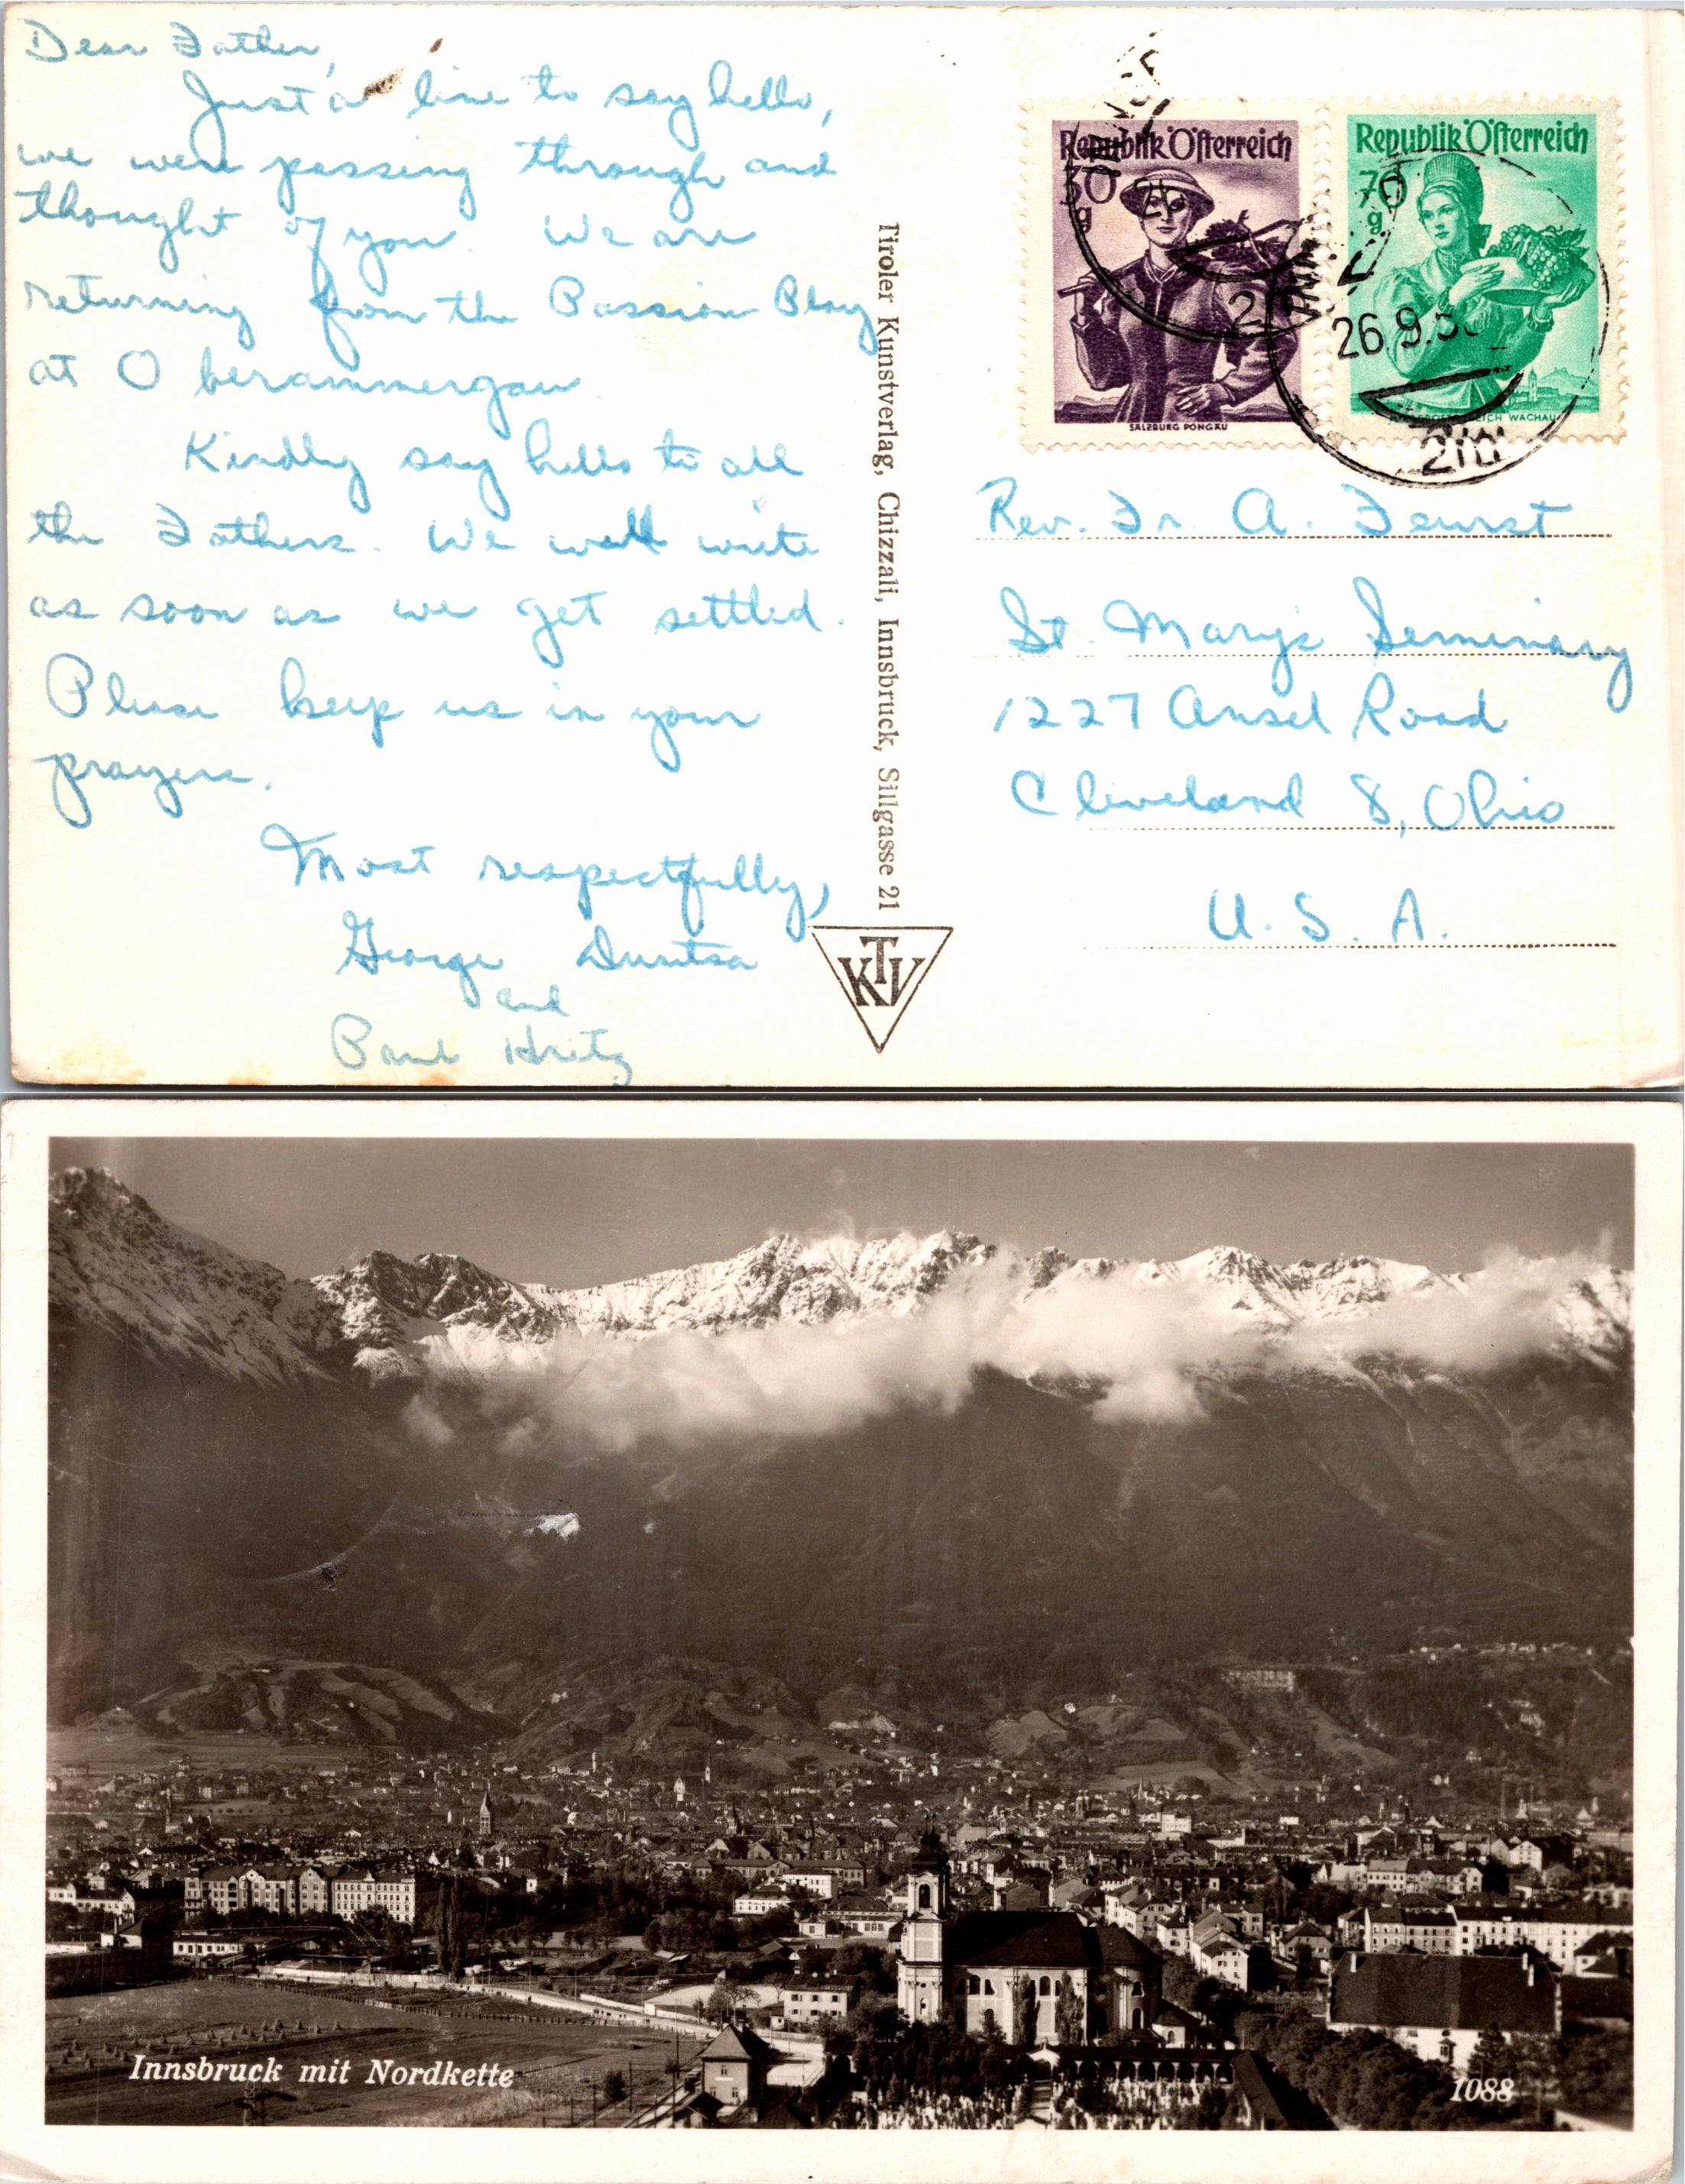 Dear Father,
Just a line to say hello,
we were passing through and
thought of you. We are
returning from the Passion Play
at Oberammergau.
Kindly say hello to all
the Fathers. We will write
as soon as we get settled.
Please keep us in your
prayers.
Most respectfully,
George Duritsa
and
Paul Hritz
Tiroler Kunstverlag, Chizzali, Innsbruck, Sillgasse 21
KTV
Republik Österreich
30
g
SALZBURG PONGAU
Republik Österreich
70
g
WACHAU
26.9.5
Rev. Fr. A. Feurst
St. Mary's Seminary
1227 Ansel Road
Cleveland 8, Ohio
U. S. A.
Innsbruck mit Nordkette
1088